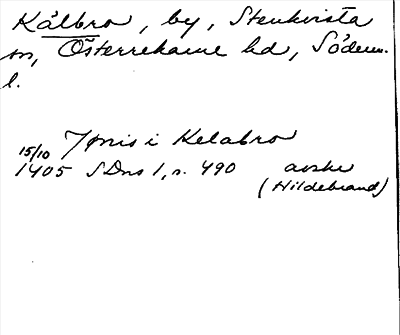 Kålbro, by, Stenkvista
sn, Österrekarne hd, Söderm.
l.
Jønis i Kelabro
15/10
1405 SDns 1, s. 490 avskr
(Hildebrand)